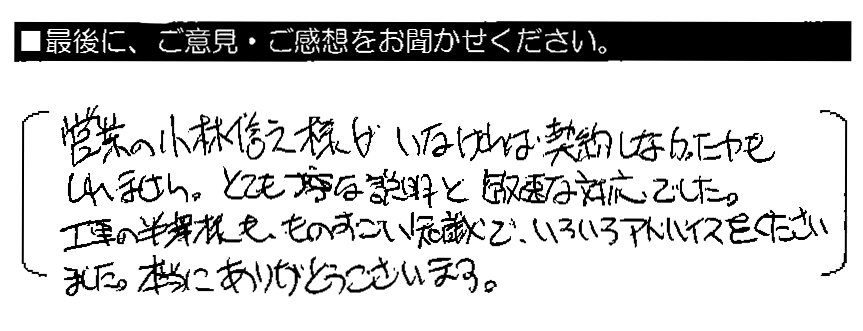 ■最後に、ご意見・ご感想をお聞かせください。
営業の小林信之様がいなければ契約しなかったかも
しれません。とても丁寧な説明と敏速な対応でした。
工事の半澤様も、ものすごい知識で、いろいろアドバイスをください
ました。本当にありがとうございます。